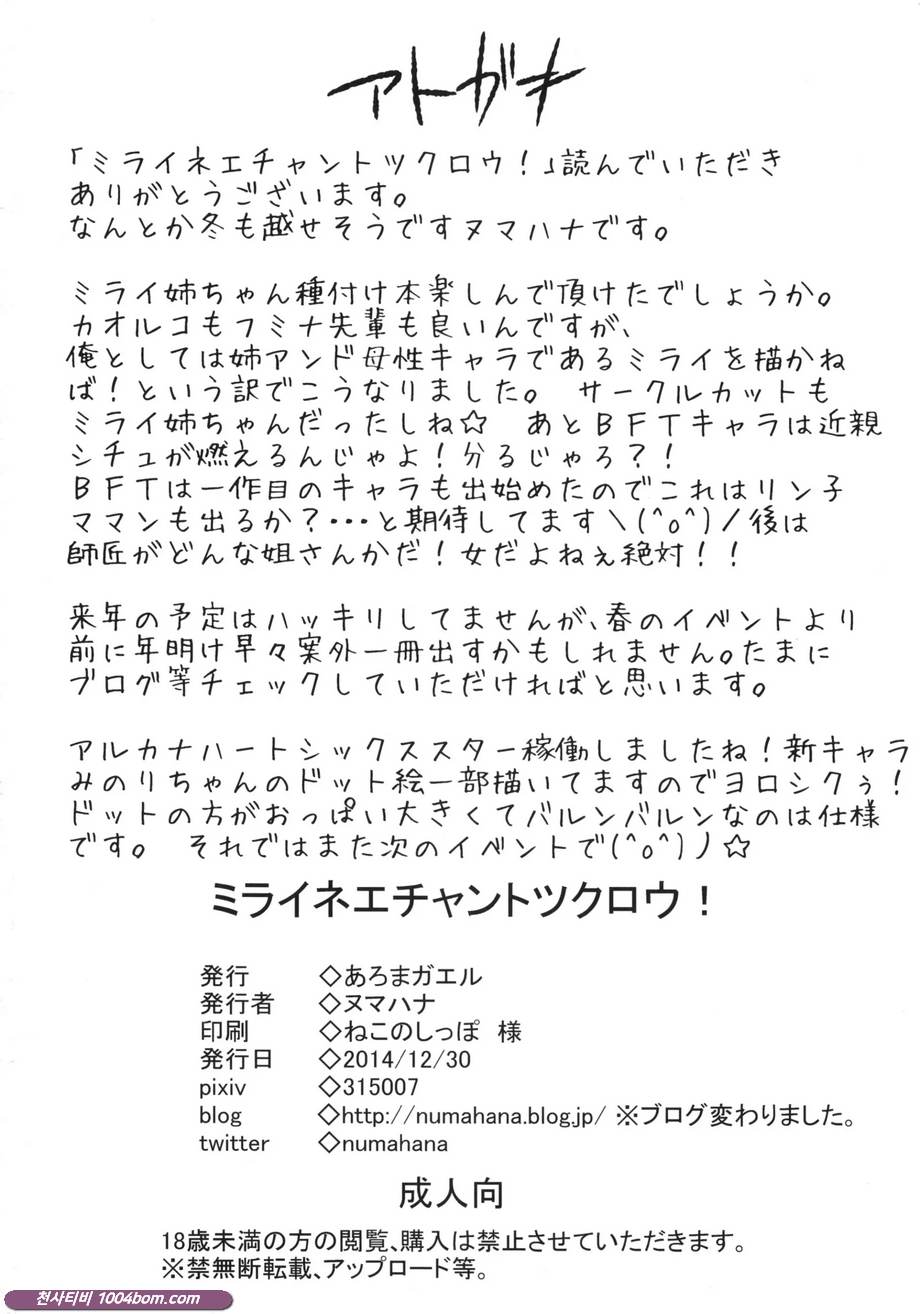 アトガキ
「ミライネエチャントツクロウ！」読んでいただき
ありがとうございます。
なんとか冬も越せそうですヌマハナです。
ミライ姉ちゃん種付け本楽しんで頂けたでしょうか。
カオルコもフミナ先輩も良いんですが、
俺としては姉アンド母性キャラであるミライを描かね
ば！という訳でこうなりました。　サークルカットも
ミライ姉ちゃんだったしね☆　あとＢＦＴキャラは近親
シチュが燃えるんじゃよ！分るじゃろ？！
ＢＦＴは一作目のキャラも出始めたのでこれはリン子
ママンも出るか？・・・と期待してます＼(^o^)／後は
師匠がどんな姐さんかだ！女だよねぇ絶対！！
来年の予定はハッキリしてませんが、春のイベントより
前に年明け早々案外一冊出すかもしれません。たまに
ブログ等チェックしていただければと思います。
アルカナハートシックススター稼働しましたね！新キャラ
みのりちゃんのドット絵一部描いてますのでヨロシクぅ！
ドットの方がおっぱい大きくてバルンバルンなのは仕様
です。　それではまた次のイベントで(^o^)ノ☆
ミライネエチャントツクロウ！
発行　◇あろまガエル
発行者　◇ヌマハナ
印刷　◇ねこのしっぽ　様
発行日　◇2014/12/30
pixiv　◇315007
blog　◇http://numahana.blog.jp/ ※ブログ変わりました。
twitter　◇numahana
成人向
18歳未満の方の閲覧、購入は禁止させていただきます。
※禁無断転載、アップロード等。
천사티비 1004bom.com